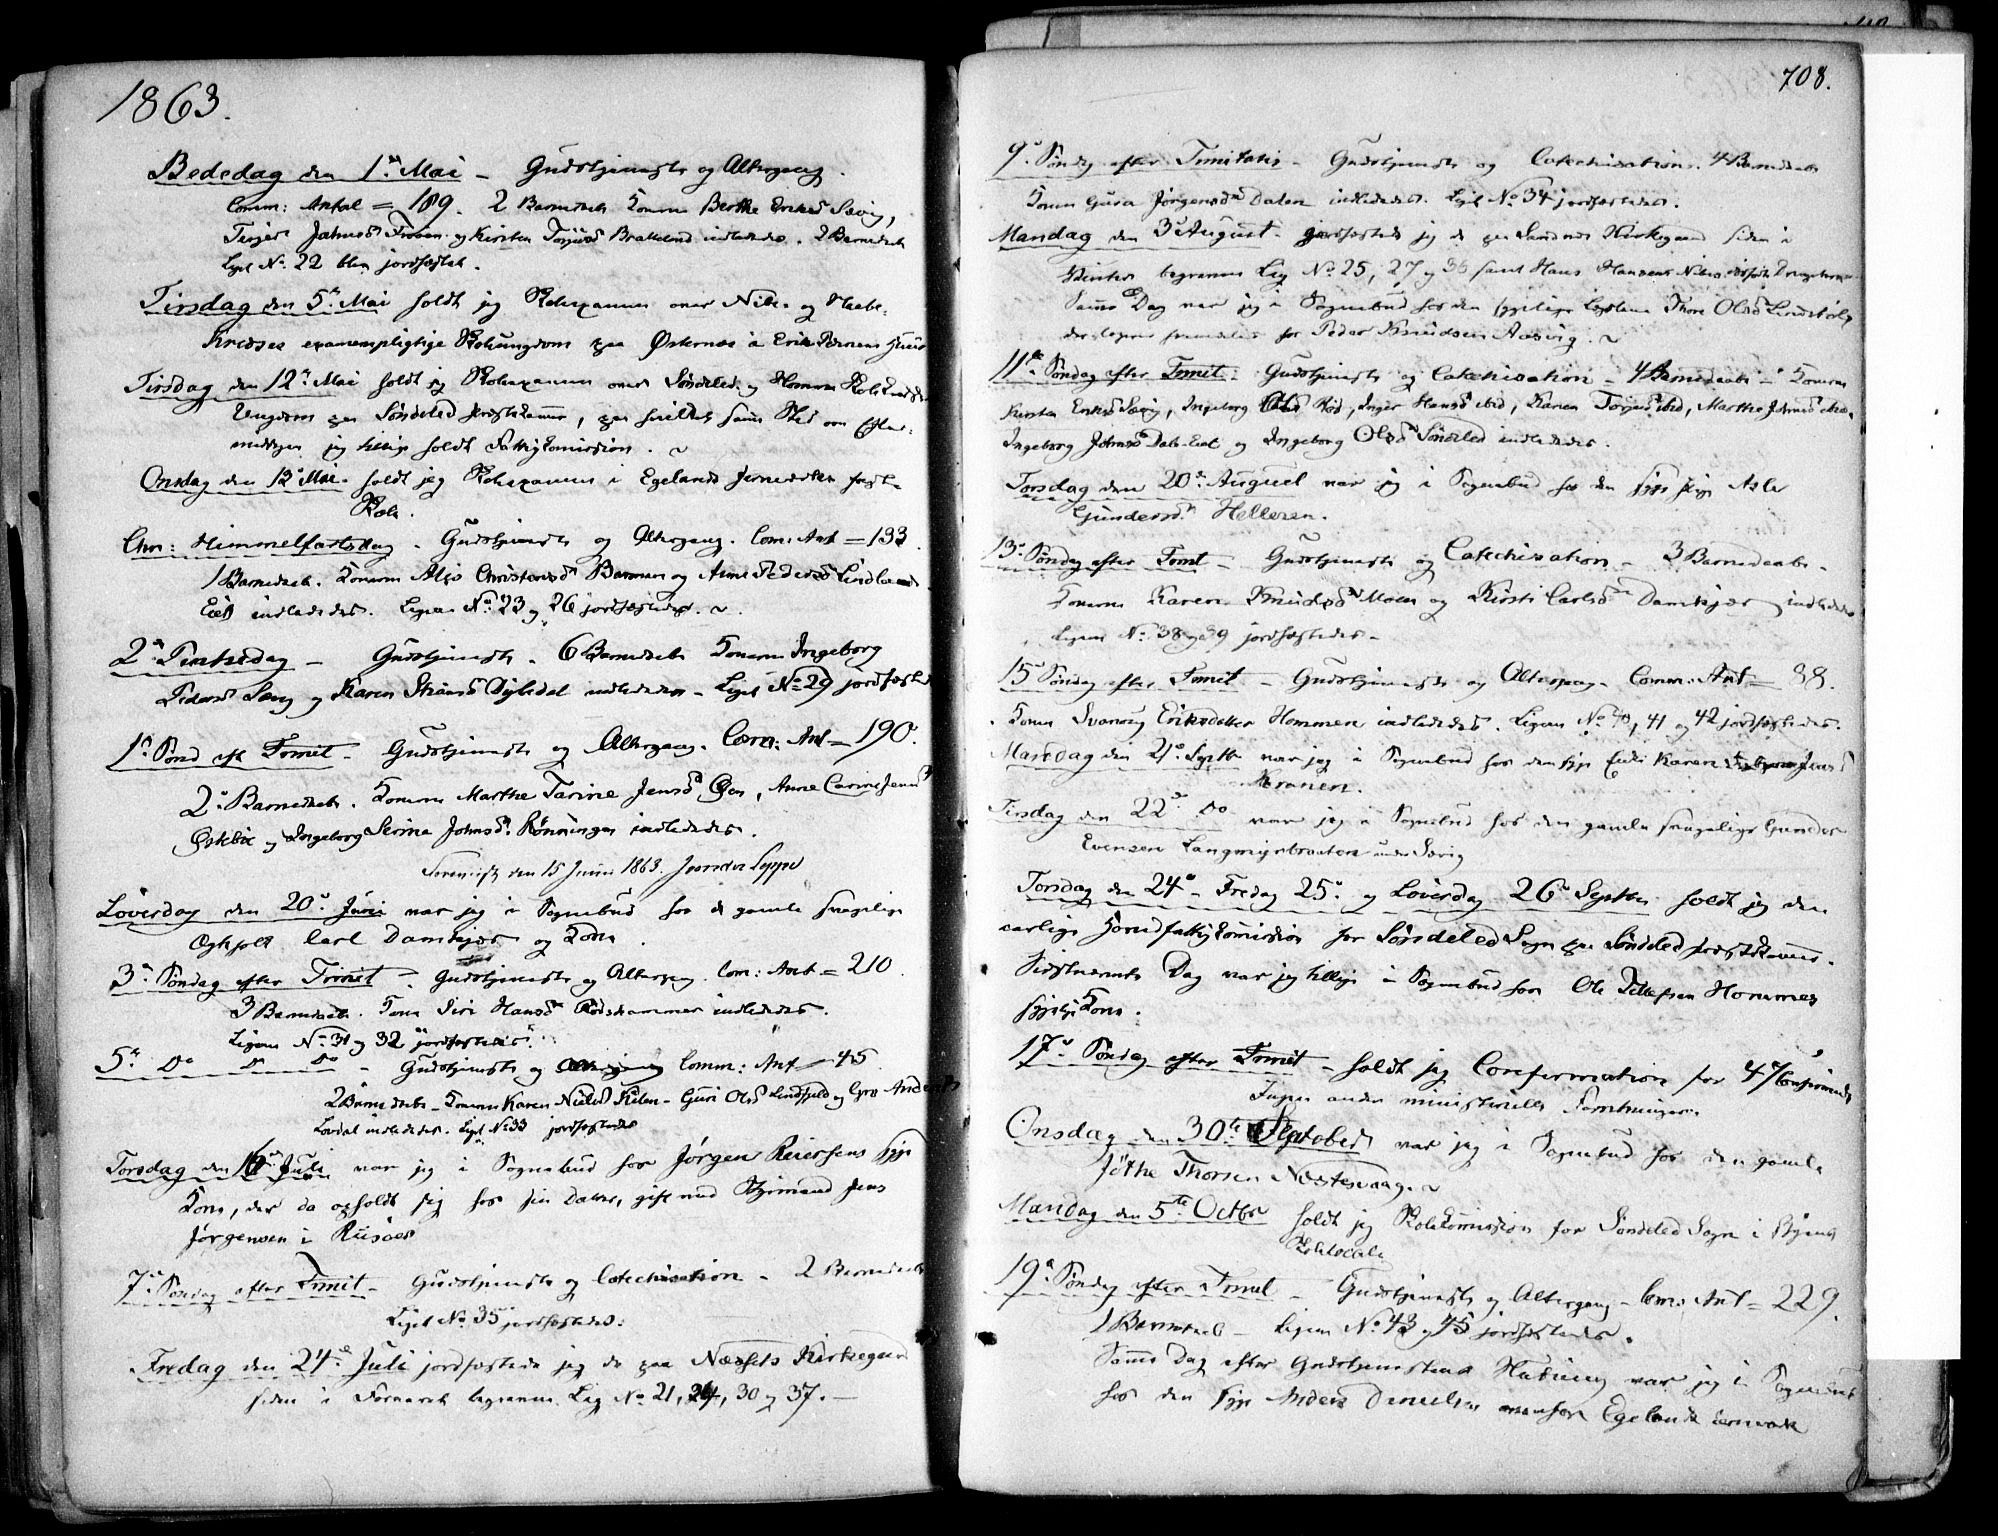 1863.
Bededag den 1ste Mai - Gudstjeneste og Altergang.
Comm: Antal = 189. 2 Barnedaab Konerne Berthe Eriksd Sævig,
Terjer Jahnsd Trosen og Kirsten Torjusd Brakelund indlededes. 2 Barnedaab
Liget No 22 blev jordfæstet.
Tirsdag den 5te Mai holdt jeg Skoleexamen over Nibe- og Stabe-
Kredses examenpligtige Skoleungdom paa Østernæs i Erik Persens Huus
Tirsdag den 12te Mai holdt jeg Skoleexamen over Søndeled og Hommes Skolekredses
Ungdom paa Søndeled Præstekammer, paa hvilket samme Sted om Efter-
middagen jeg tillige holdt Fattigkomission.
Onsdag den 13de Mai holdt jeg Skoleexamen i Egelands Jernverks fast-
Skole.
Chr: Himmelfartsdag. Gudstjeneste og Altergang. Com: Ant = 133.
1 Barnedaab. Konerne Alis Christensd Barmen og Anne Pedersd Lindland
Eiet indlededes. Ligene No 23 og 26 jordfæstedes.
2den Pintsedag - Gudstjeneste. 6 Barnedaab Konerne Ingeborg
Pedersd Sævig og Karen Steansd Dybedal indlededes - Liget No 29 jordfæstedes
1ste Sønd eft Trinit - Gudstjeneste og Altergang. Com: Ant = 190.
2 Barnedaab. Konerne Marthe Tarine Jensd Øen, Anne Carine Jensd
Østebø og Ingeborg Serine Johnsd Rønningen indlededes.
den 15 Juni 1863.
Løverdag den 20de Juni var jeg i Sognebud hos de gamle svagelige
Ægtefolk Carl Damkjær og Kone.
3die Søndag efter Trinit - Gudstjeneste og Altergang. Com: Ant = 210.
3 Barnedaab. Kone Siri Hansd Rødskammer indlededes.
Ligene No 31 og 32 jordfæstedes.
5te Do D Do - Gudstjeneste og Altergang Comm: Ant = 45
2 Barnedaab - Konerne Karen Nielsd Kilen - Guri Olsd Lindfjeld og Gro Andersd
Lovdal indlededes. Liget No 33 jordfæstedes
Torsdag den 16de Juli var jeg i Sognebud hos Jørgen Reiersens syge
Kone, der da opholdt sig hos sin Datter, gift med Styrmand Jens
Jørgensen i Risøer
7de Søndag efter Trinit - Gudstjeneste og Catechisation - 2 Barnedaab
Liget No 35 jordfæstedes.
Fredag den 24de Juli jordfæstede jeg de paa Næssets Kirkegaard
siden i Foraaret begravne Lig No 21, 24, 30 og 37.
708.
9de Søndag efter Trinitatis - Gudstjeneste og Catechisation. 4 Barnedaab
Konen Gura Jørgensd Dalen indlededes. Liget No 34 jordfæstedes.
Mandag den 3die August jordfæstede jeg de paa Sandnes Kirkegaard siden i
Vinter begravne Lig No 25, 27 og 36 samt Hans Hansens
Samme Dag var jeg i Sognebud hos den sygelige Thore Olsd Lindstøl,
for Peder Knudsen Aasvig.
11te Søndag efter Trinit - Gudstjeneste og Catechisation - 4 Barnedaab - Konerne
Kirsten Eriksd Sævig, Ingeborg Olsd Rød, Inger Hansd ibid, Karen Torjesd ibid, Marthe Johnsd
Ingeborg Johnsd Dale-Eiet og Ingeborg Olsd Søndeled indlededes.
Torsdag den 20de August var jeg i Sognebud hos den syge Pige Asle
Gundersd Helleren.
13de Søndag efter Trinit - Gudstjeneste og Catechisation - 3 Barnedaab.
Konerne Karen Knudsd Molen og Kirsti Carlsd Damkjær indlededes
Ligene No 38 og 39 jordfæstedes.
15de Søndag efter Trinit - Gudstjeneste og Altergang. Comm: Ant = 88.
Konen Svanaug Eriksdatter Hommen indlededes. Ligene No 40, 41 og 42 jordfæstedes.
Mandag den 21de Septbr var jeg i Sognebud hos den syge Enke Karen Jensd
Kranen.
Tirsdag den 22de Do var jeg i Sognebud hos den gamle svagelige Gunder
Evensen Langmyrbraaten under Sævig
Torsdag den 24de - Fredag 25de og Løverdag 26de Septbr holdt jeg den
aarlige Hovedfattigkomission for Søndeled Sogn paa Søndeled Præstekammer.
Sidstnævnte Dag var jeg tillige i Sognebud hos Ole Tellefsen Hommes
sygelige Kone.
17de Søndag efter Trinit - holdt jeg Confirmation for 47 Confirmander
Ingen anden ministerielle Forretninger
Onsdag den 30te September var jeg i Sognebud hos den gamle
Jøthe Thorsen Næstesvaag.
Mandag den 5te Octbr holdt jeg Skolekomission for Søndeled Sogn i Byens
Skolelocale
19de Søndag efter Trinit - Gudstjeneste og Altergang - Com: Ant = 229.
1 Barnedaab - Ligene No 43 og 45 jordfæstedes.
Samme Dag efter Gudstjenestens Holdning var jeg i Sognebud
hos den syge Anders Danielsen ovenfor Egelands Jernværk